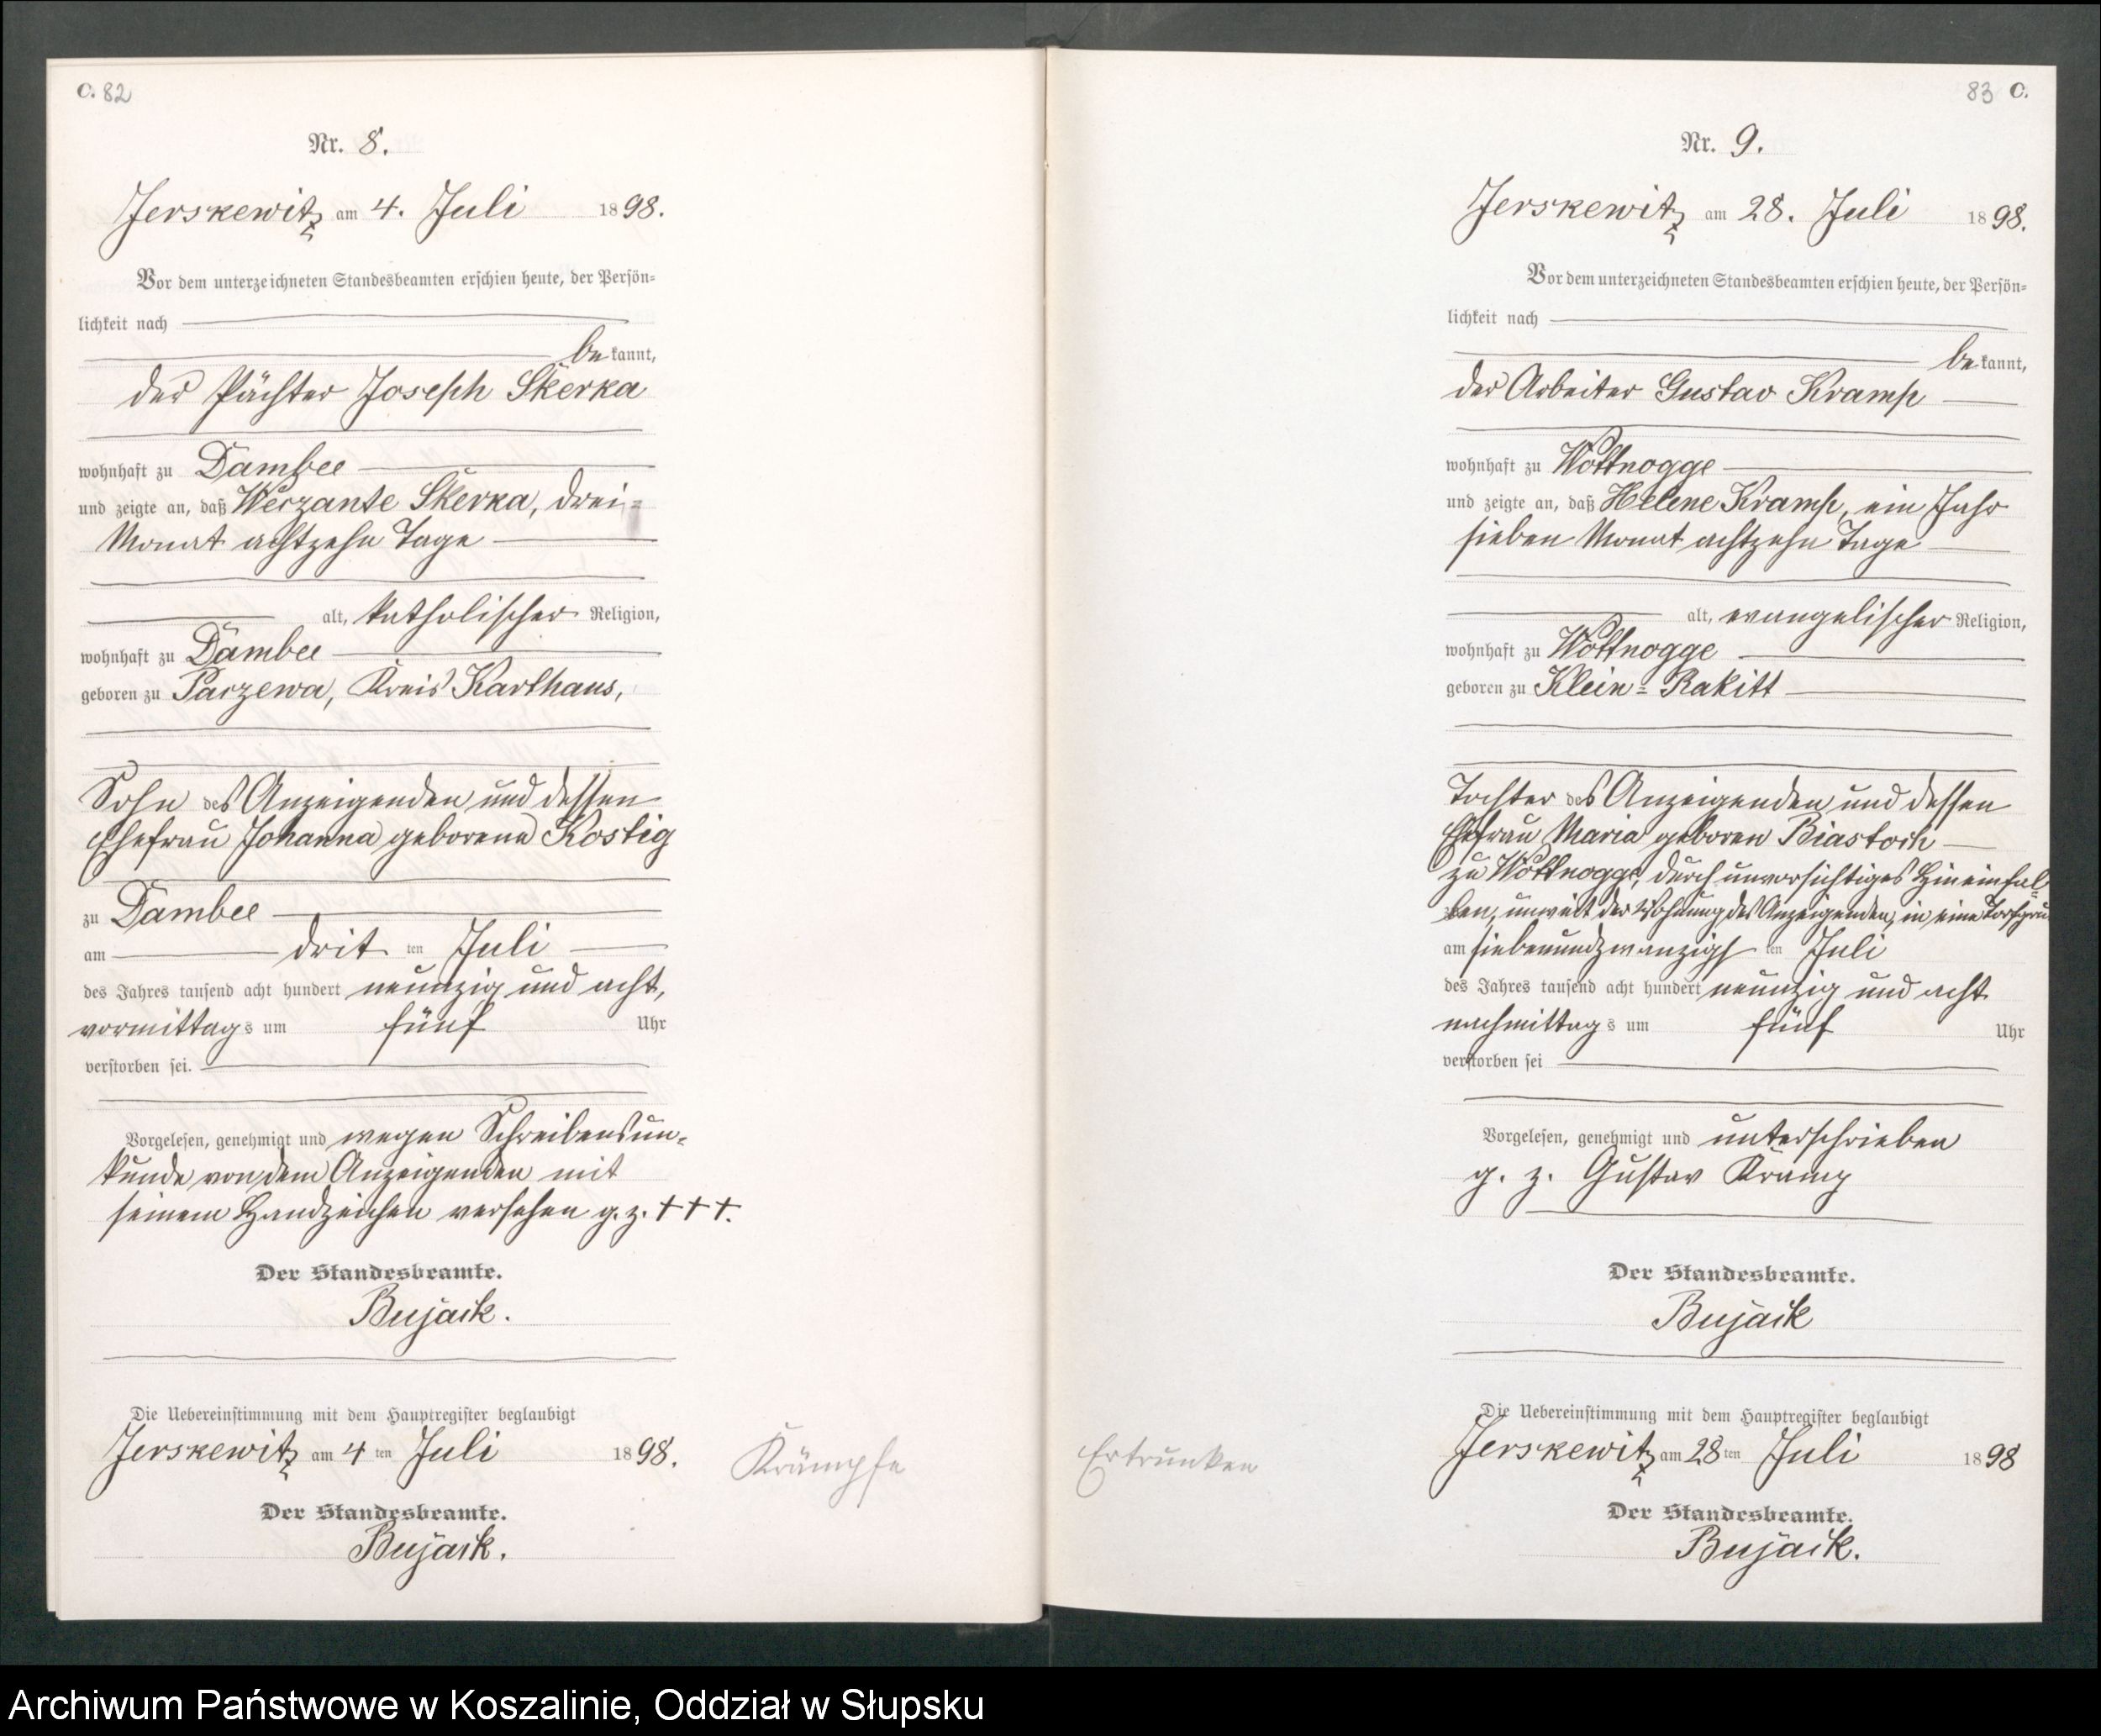 C. 82
Nr. 8.
Jerskewitz am 4. Juli 1898.
Vor dem unterzeichneten Standesbeamten erschien heute, der Persön-
lichkeit nach
bekannt,
der Pächter Joseph Skerka
wohnhaft zu Dambee
und zeigte an, daß Werzante Skerka, drei-
Monat achtzehn Tage
alt, katholischer Religion,
wohnhaft zu Dambee
geboren zu Parzewa, Kreis Karthaus,
Sohn des Anzeigenden und dessen
Ehefrau Johanna geborene Kostig
zu Dambee
am dritten Juli
des Jahres tausend acht hundert neunzig und acht,
vormittags um fünf Uhr
verstorben sei.
Vorgelesen, genehmigt und wegen Schreibensun-
kunde von dem Anzeigenden mit
seinem Handzeichen versehen g. z. + + +.
Der Standesbeamte.
Bujack.
Die Uebereinstimmung mit dem Hauptregister beglaubigt
Jerskewitz am 4ten Juli 1898.
Krämpfe
Der Standesbeamte.
Bujack.
83 C.
Nr. 9.
Jerskewitz am 28. Juli 1898.
Vor dem unterzeichneten Standesbeamten erschien heute, der Persön-
lichkeit nach
bekannt,
der Arbeiter Gustav Kramp
wohnhaft zu Wottnogge
und zeigte an, daß Helene Kramp, ein Jahr
sieben Monat achtzehn Tage
alt, evangelischer Religion,
wohnhaft zu Wottnogge
geboren zu Klein-Rakitt
Tochter des Anzeigenden und dessen
Ehefrau Maria geboren Biastoch
zu Wottnogge, durch unvorsichtiges Hineinfal-
len, unweit der Wohnung des Anzeigenden, in eine Torfgru
am siebenundzwanzigsten Juli
des Jahres tausend acht hundert neunzig und acht
nachmittags um fünf Uhr
verstorben sei
Vorgelesen, genehmigt und unterschrieben
g. z. Gustav Kramp
Der Standesbeamte.
Bujack
Die Uebereinstimmung mit dem Hauptregister beglaubigt
Ertrunken
Jerskewitz am 28ten Juli 1898
Der Standesbeamte.
Bujack.
Archiwum Państwowe w Koszalinie, Oddział w Słupsku